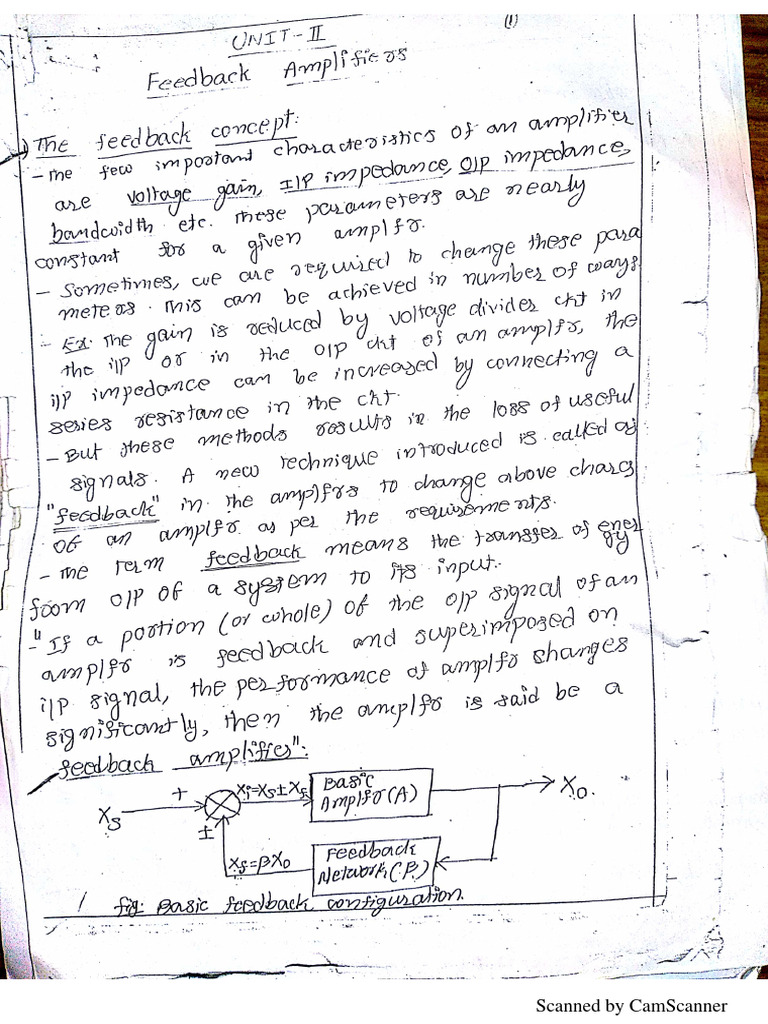 (1)
UNIT-II
Feedback Amplifiers
The feedback concept:
- The few important characteristics of an amplifier
are voltage gain, I/P impedance, O/P impedance,
bandwidth etc. These parameters are nearly
constant for a given amplfr.
- Sometimes, we are required to change these para
meters. This can be achieved in number of ways.
- Ex: The gain is reduced by voltage divider ckt in
the i/p or in the o/p ckt of an amplfr, the
i/p impedance can be increased by connecting a
series resistance in the ckt.
- But these methods results in the loss of useful
signals. A new technique introduced is called as
"feedback" in the amplfrs to change above charcs
of an amplfr as per the requirements.
- The term feedback means the transfer of ener
gy
from o/p of a system to its input.
- "If a portion (or whole) of the o/p signal of an
amplfr is feedback and superimposed on
i/p signal, the performance of amplfr changes
significantly, then the amplfr is said be a
feedback amplifier":
Xs + Xi=Xs±Xf Basic Amplfr(A) Xo.
±
Xf=βXo Feedback Network(β)
fig: Basic feedback configuration.
Scanned by CamScanner